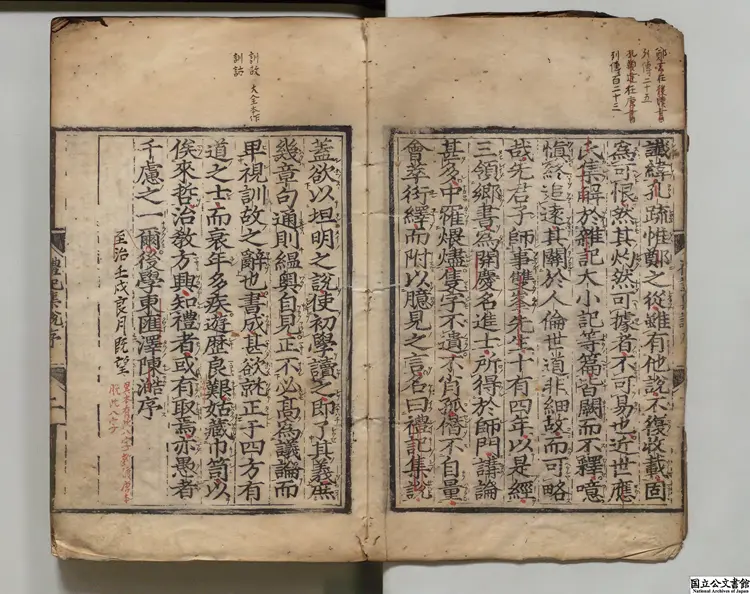 鄭玄在後漢書
列傳二十五
孔穎達在唐書
列傳百二十三
讖緯孔疏惟鄭之從雖有他說不復收載固
為可恨然其灼然可據者不可易也近世應
氏集解於雜記大小記等篇皆闕而不釋噫
愼終追遠其關於人倫世道非細故而可略
哉先君子師事雙峯先生十有四年以是經
三領鄉書為開慶名進士所得於師門講論
甚多中罹煨燼隻字不遺不肖孤僭不自量
會萃衍繹而附以臆見之言名曰禮記集說
訓故 大全本作
訓詁
蓋欲以坦明之說使初學讀之即了其義庶
幾章句通則緼奧自見正不必高為議論而
卑視訓故之辭也書成甚欲就正于四方有
道之士而衰年多疾遊歷良艱姑藏巾笥以
俟來哲治教方興知禮者或有取焉亦愚者
千慮之一爾後學東匯澤陳澔序
至治壬戌良月旣望
禮記集說序
国立公文書館
National Archives of Japan